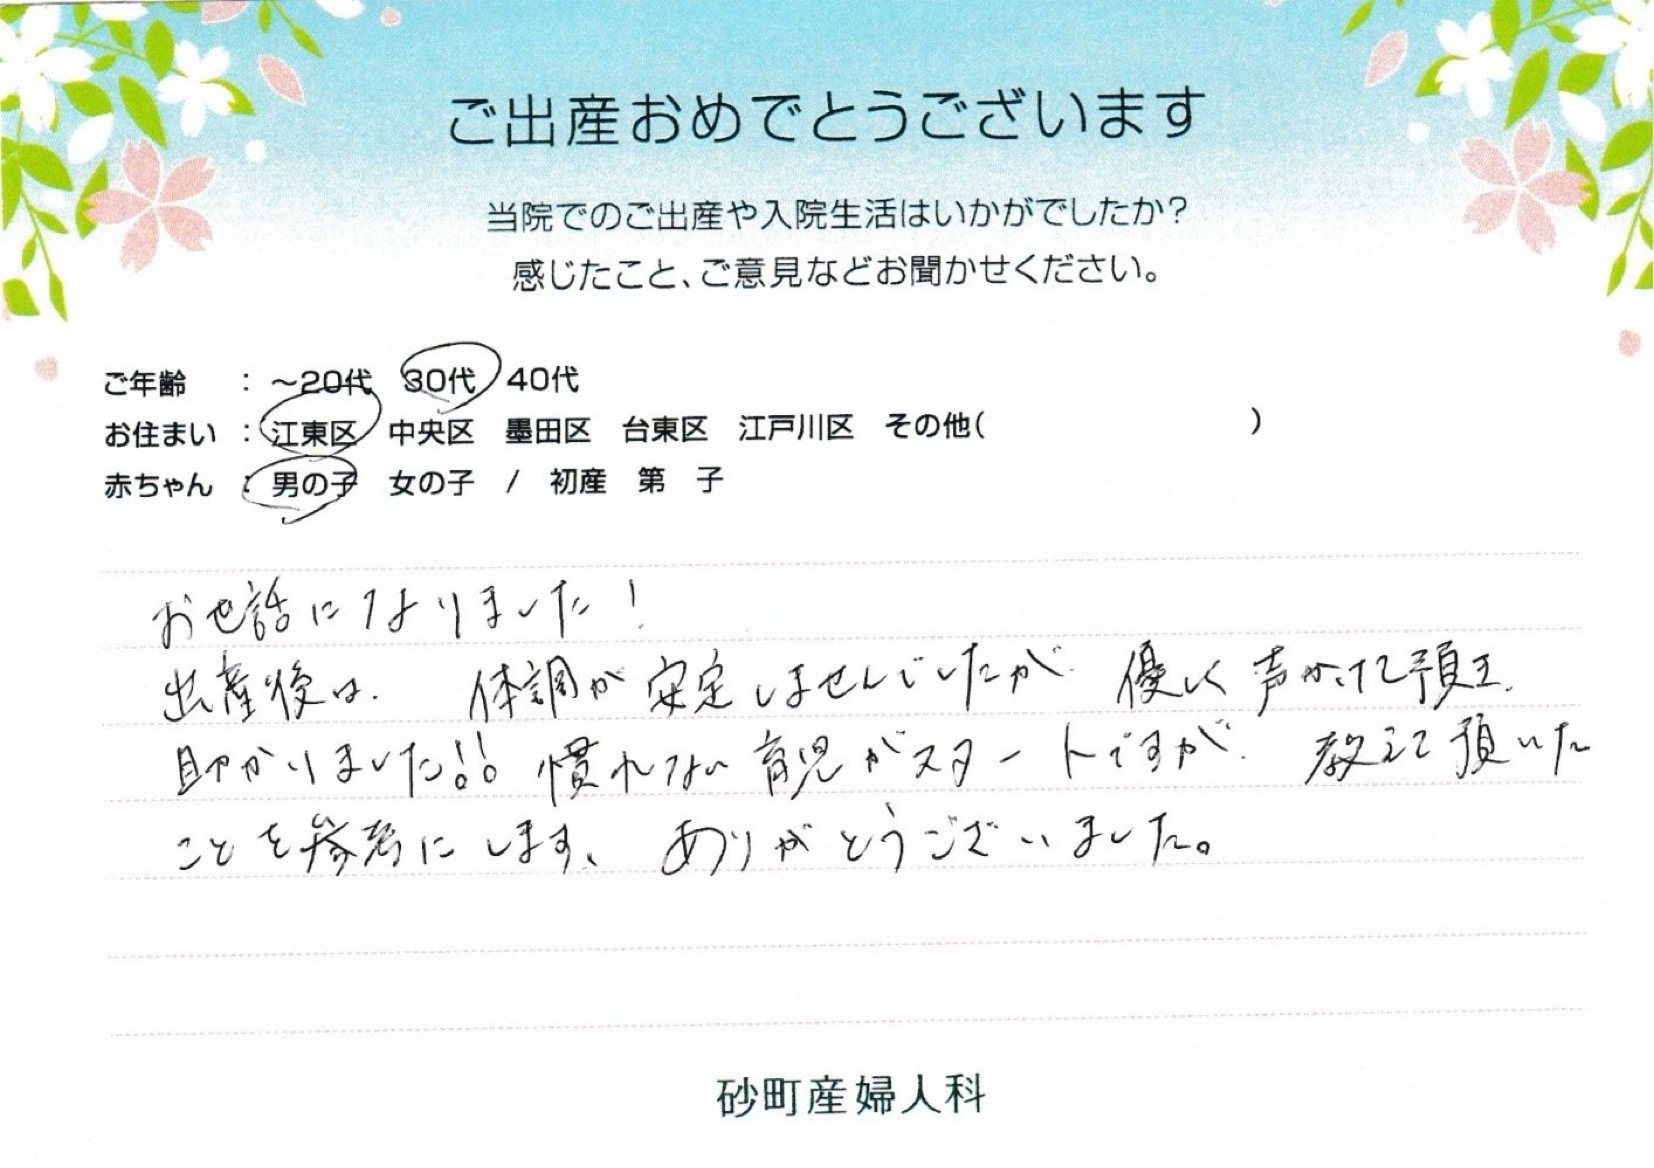 ご出産おめでとうございます
当院でのご出産や入院生活はいかがでしたか?
感じたこと、ご意見などお聞かせください。
ご年齢 : ~20代 30代 40代
お住まい : 江東区 中央区 墨田区 台東区 江戸川区 その他( )
赤ちゃん : 男の子 女の子 / 初産 第 子
お世話になりました!
出産後は、体調が安定しませんでしたが、優しく声かけて頂き、
助かりました!! 慣れない育児がスタートですが、教えて頂いた
ことを参考にします、ありがとうございました。
砂町産婦人科